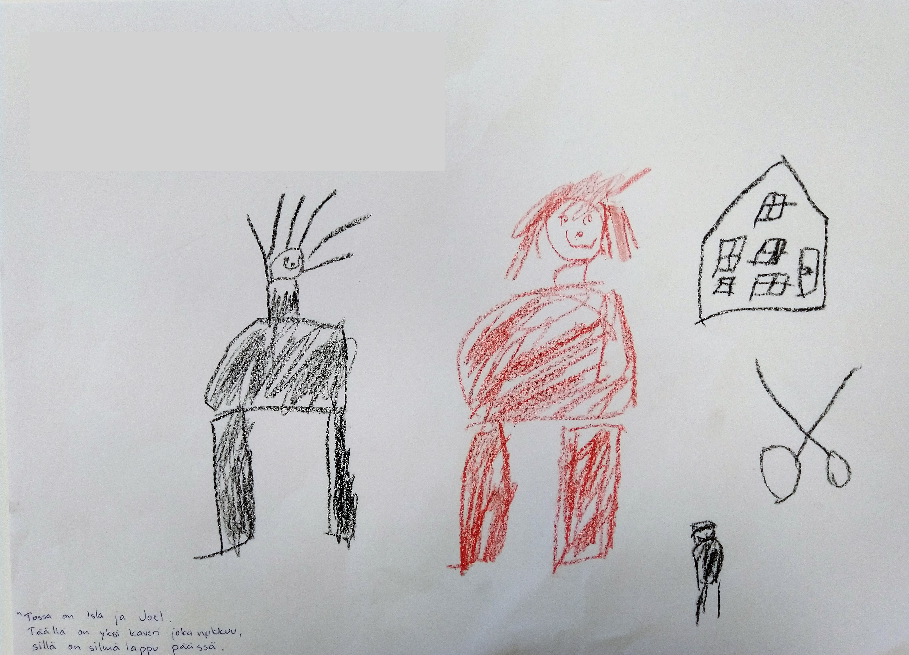 "Tossa on Isla ja Joel.
Täällä on yksi kaveri joka nukkuu,
sillä on silmä lappu päässä.